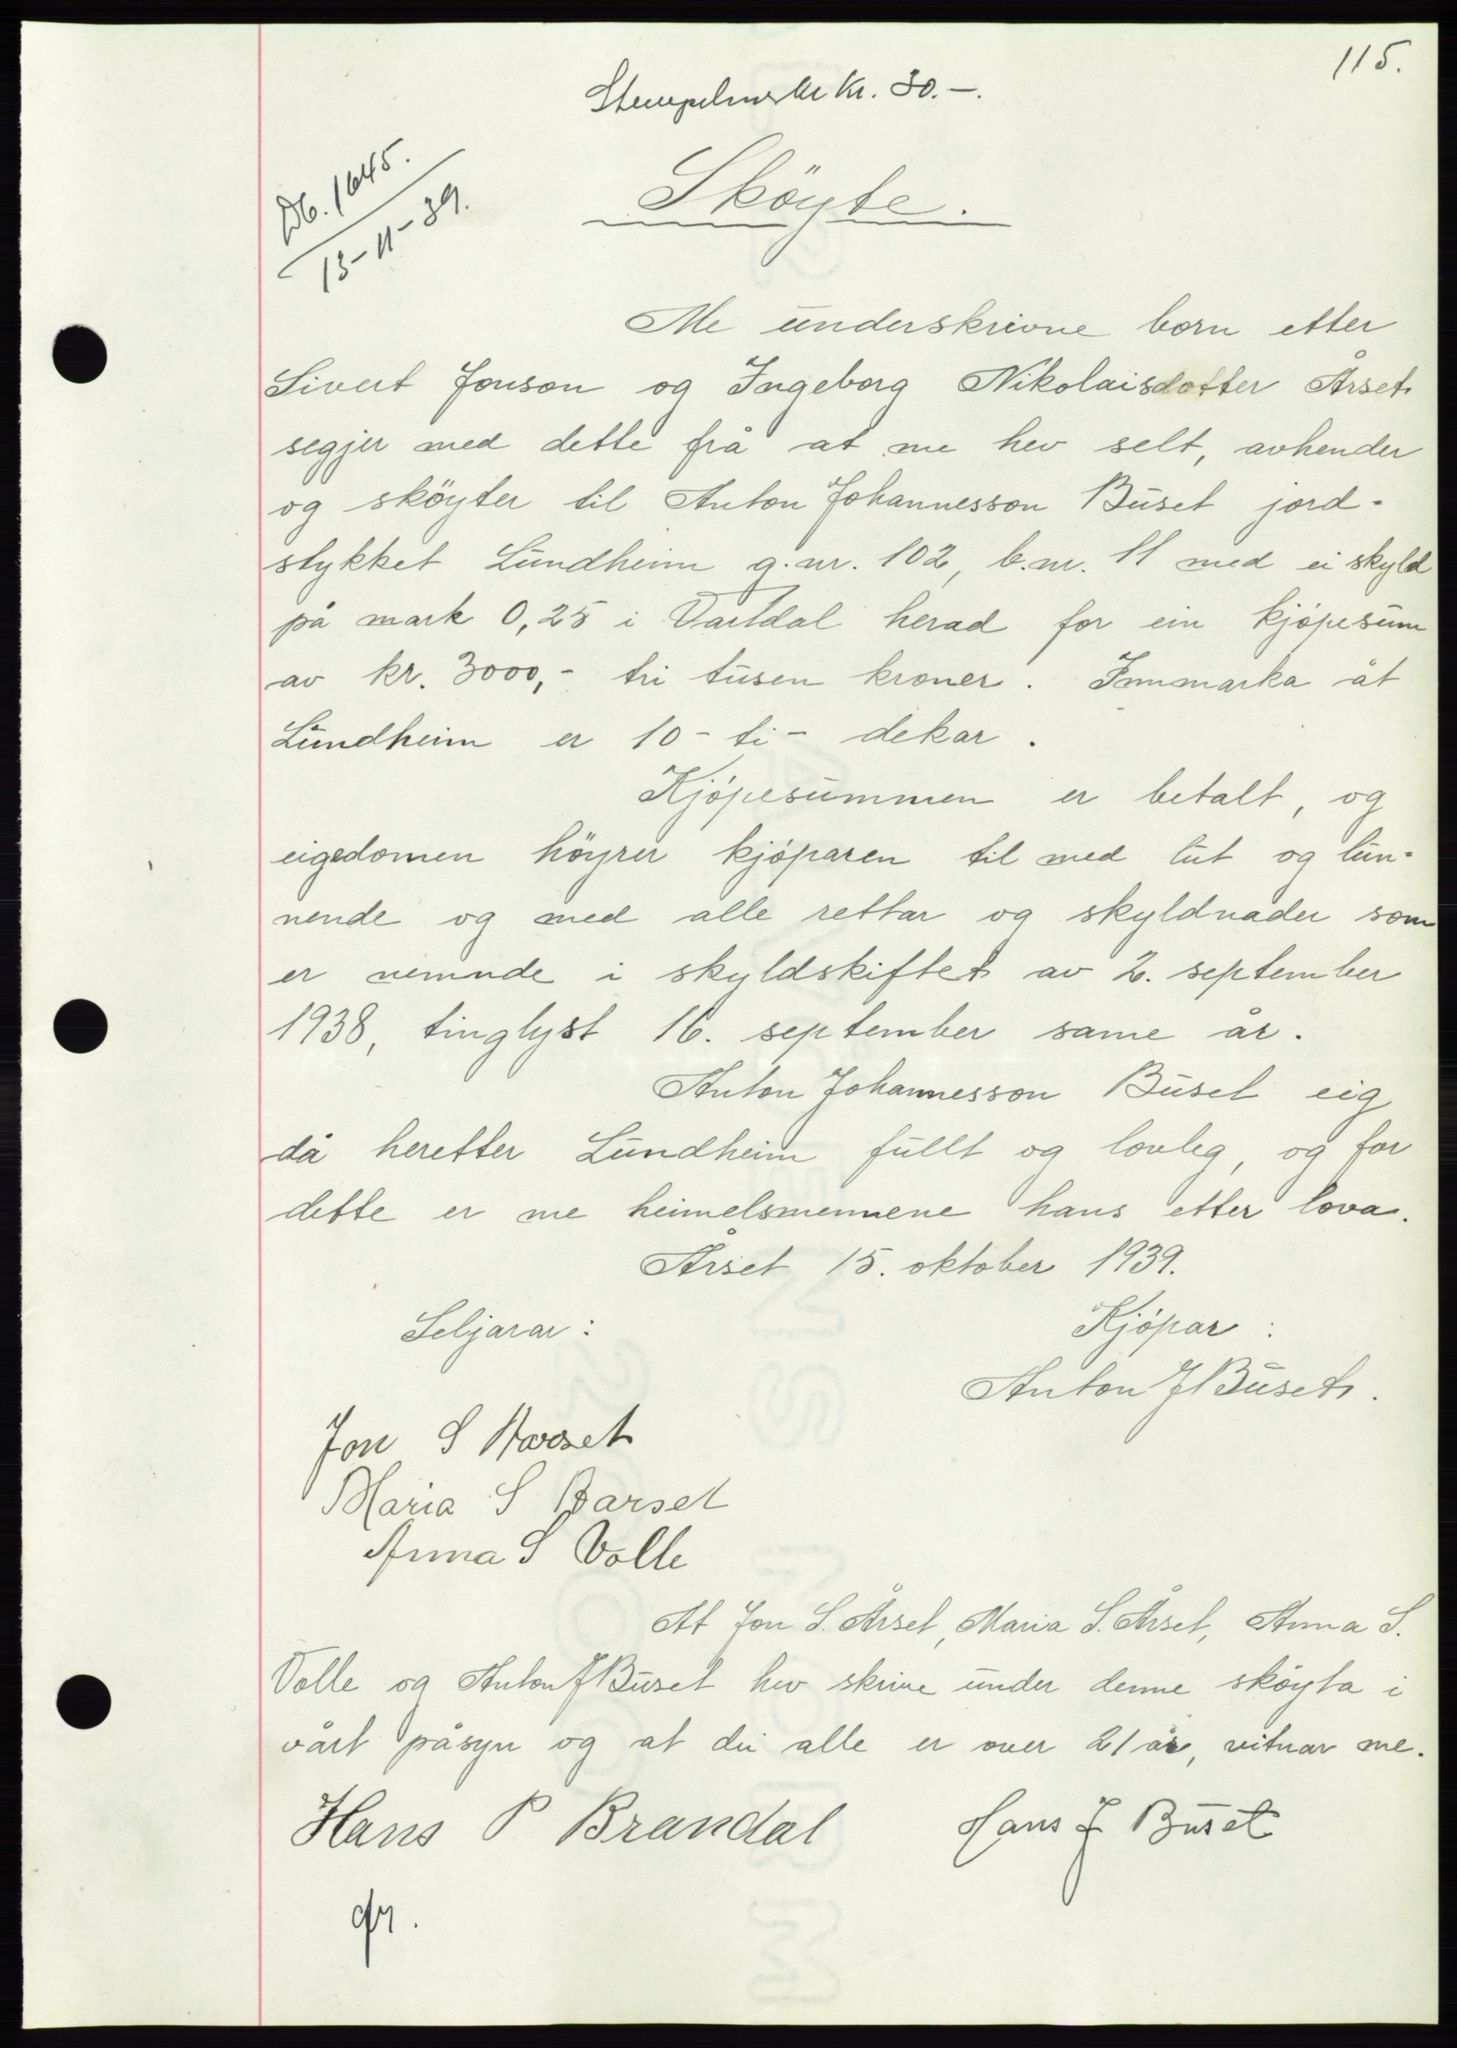 115.
Stempelmerke Kr. 30.-.
Db. 1645.
13-11-39.
Sköyte.
Me underskrivne born etter
Sivert Jonson og Ingeborg Nikolaisdotter Årset
segjer med dette frå at me hev selt, avhender
og sköyter til Anton Johannesson Buset jord-
stykket Lundheim g.nr. 102, b.nr. 11 med ei skyld
på mark 0,25 i Vartdal herad for ein kjøpesum
av kr. 3000,- tri tusen kroner. Innmarka åt
Lundheim er 10 - ti - dekar.
Kjøpesummen er betalt, og
eigedomen höyrer kjøparen til med lut og lun-
nende og med alle rettar og skyldnader som
er nemnde i skyldskiftet av 2. september
1938, tinglyst 16. september same år.
Anton Johannesson Buset eig
då heretter Lundheim fullt og lovleg, og for
dette er me heimelsmennene hans etter lova.
Årset 15. oktober 1939.
Seljarar: Kjøpar:
Anton J Buset.
Jon S Aarset
Maria S Aarset
Anna S Volle
At Jon S. Årset, Maria S. Årset, Anna S.
Volle og Anton J Buset hev skrive under denne sköyta i
vårt påsyn og at dei alle er over 21 år, vitnar me.
Hans P Brandal Hans J Buset